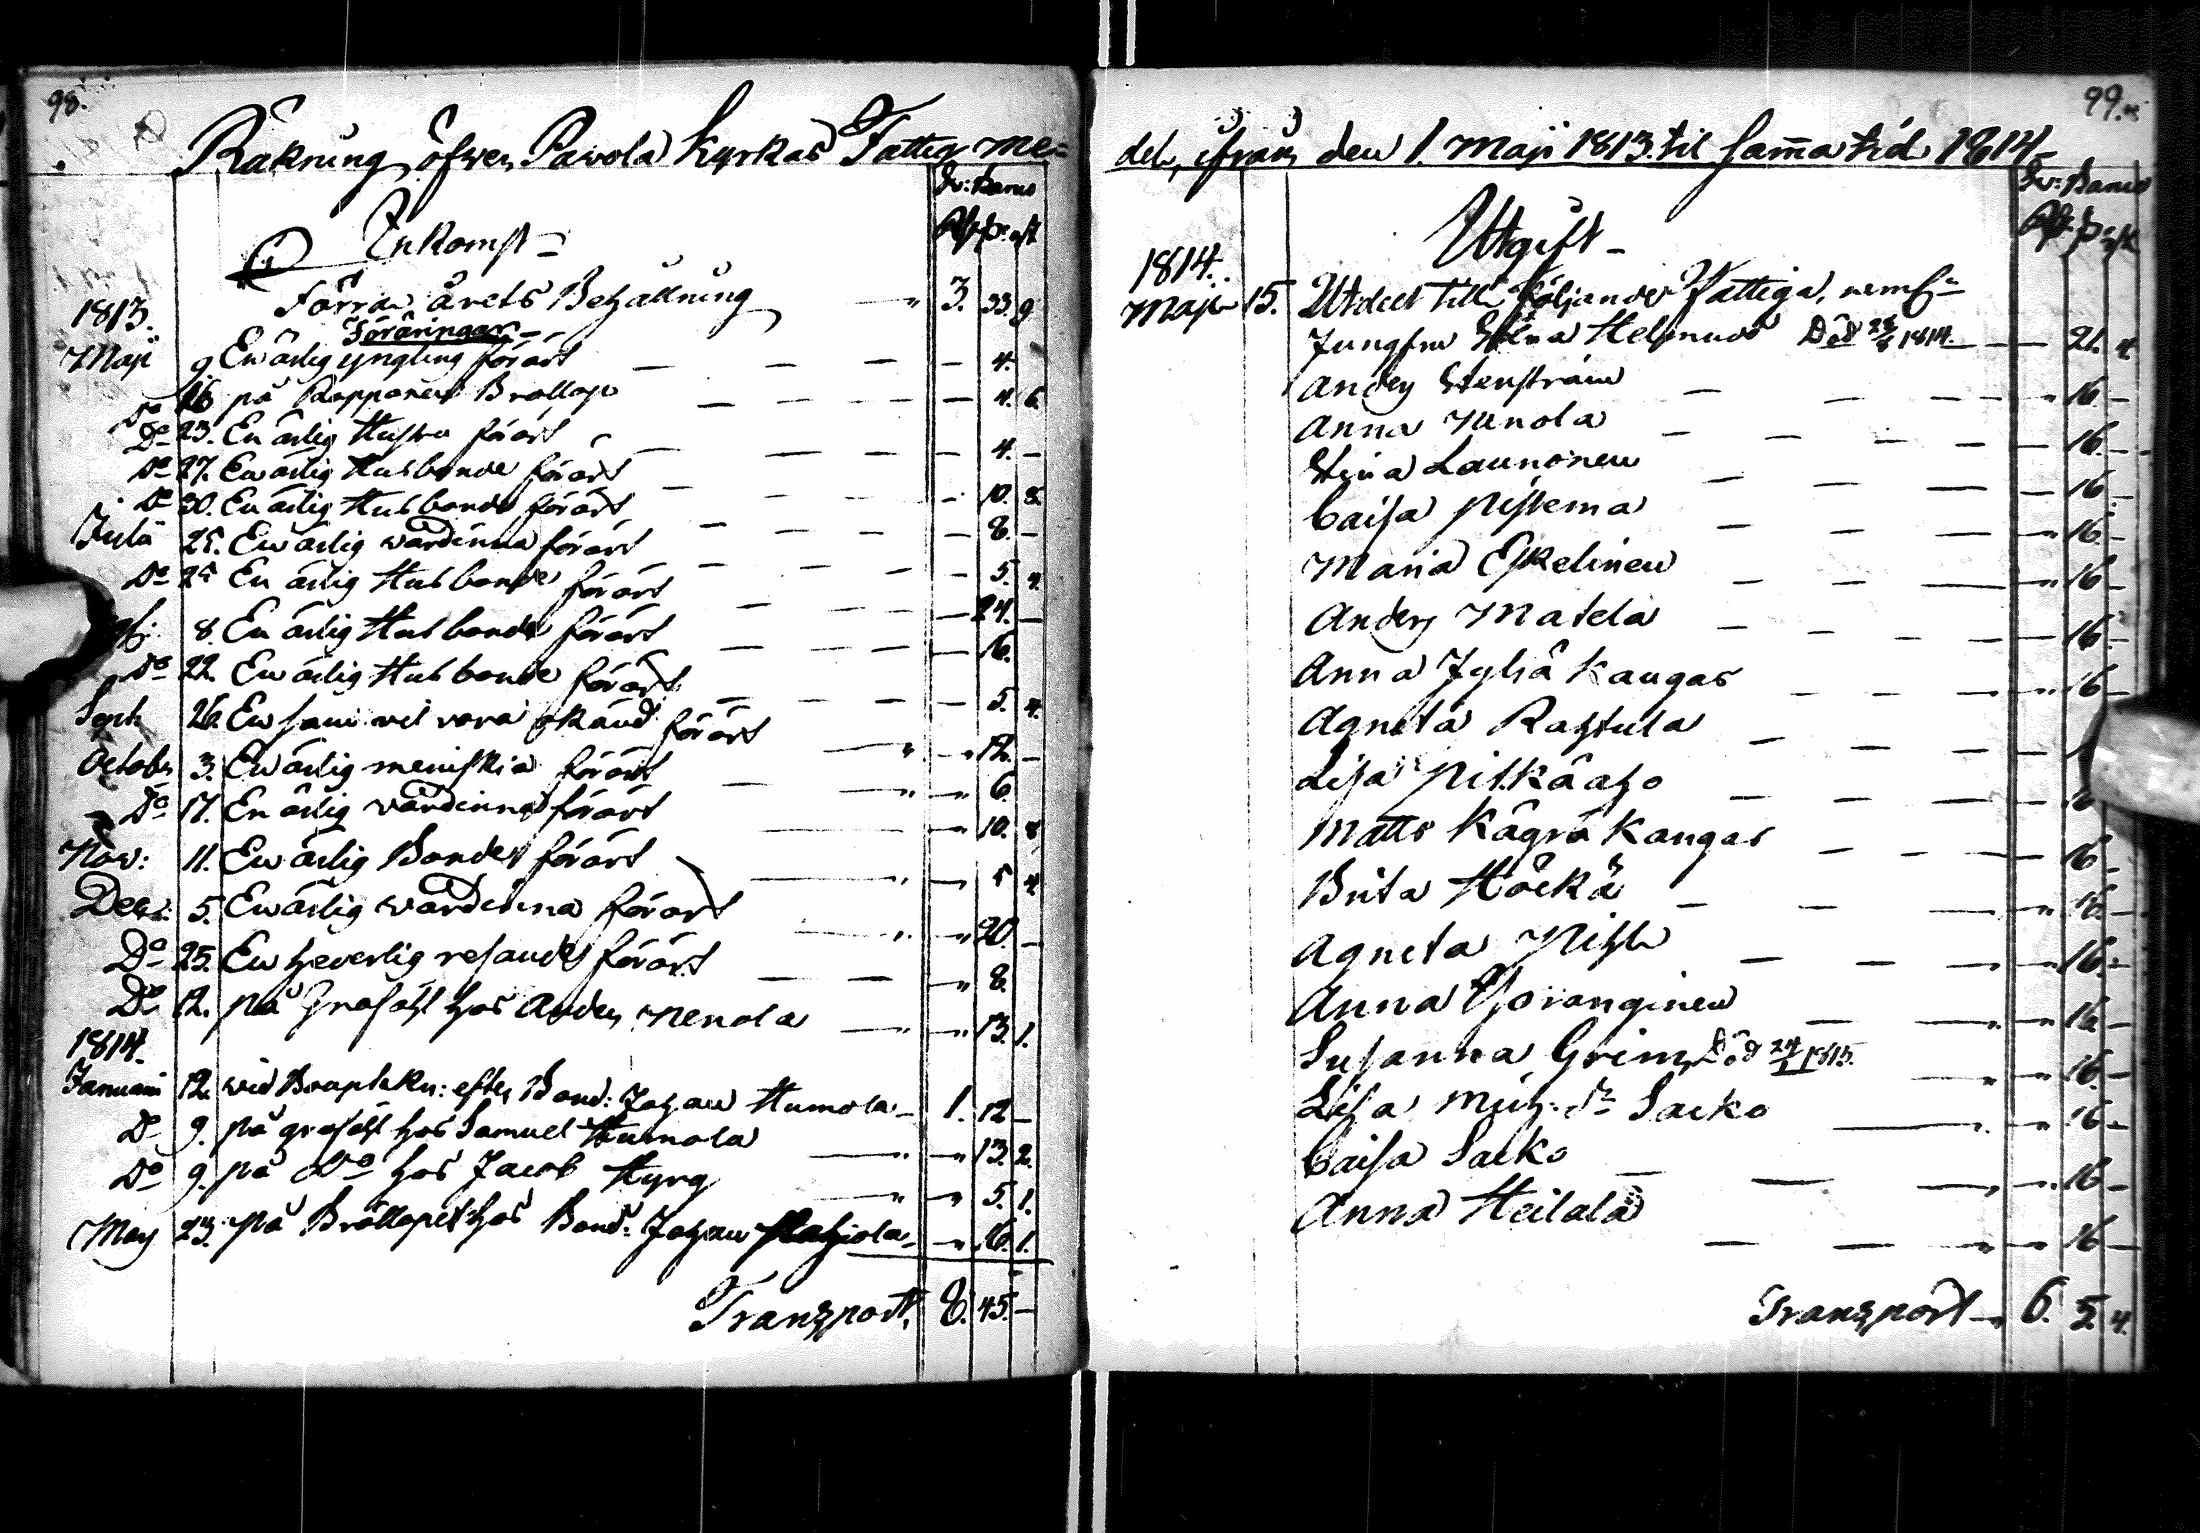 98.
Räkning öfwer Pavola Kyrkas Fattig me-
Sv: Banco
Inkomst
Förra årets Behållning " 3. 33. 9
1813. Föräringar
Maji 9 En ärlig yngling förärt 4.
Do 16 på Kopponens Bröllop 4. 6.
Do 23. En ärlig Hustru förärt 4. –
Do 27. En ärlig Husbonde förärt 10. 8.
Do 30. En ärlig Husbonde förärt 8. –
Julii 25. En ärlig wärdinna förärt 5. 4.
Do 25 En ärlig Husbonde förärt 24. –
8. En ärlig Husbonde förärt 16.
Do 22. En ärlig Husbonde förärt 5. 4.
Sept 26. En som vil vara okänd förärt 12. –
October 3. En ärlig meniskia förärt 6.
Do 17. En ärlig wärdinna förärt 10. 8.
Nov: 11. En ärlig Bonde förärt 5 4.
Decr: 5. En ärlig wärdinna förärt 20. –
Do 25. En hederlig resande förärt 8.
Do 12. på Grafölst hos Anders Nenola 13. 1.
1814.
Januari 12. wid efter Bond: Johan Humola 1. 12 –
Do 9. på grafölst hos Samuel Humola 13. 2.
Do 9. på Do hos Jacob Hyrg 5. 1.
May 23. på Bröllopet hos Bond: Johan 16. 1.
Transport, 8. 45. –
99.
del, ifrån den 1. Maji 1813. til samma tid 1814
Sv: Banco
Utgift
1814.
Maji 15. Utdelt till följande Fattiga, neml:
Jungfru Stina Helsinius Död 1814. 21. 4
Anders Stenström 16. –
Anna Nenola 16. –
Stina Launonen 16 –
Caisa Nistema 16. –
Maria Eskelinen 16 –
Anders Matela 16. –
Anna Jylhä Kangas 16 –
Agneta Rahtula
Lisa Pitkäaho
Matts Kägrä Kangas 16 –
Brita Höckä 16. –
Agneta Pihl 16. –
Anna Goranginen 16 –
Susanna Grim Död 1815. 16. –
Lisa dr Sacko 16 –
Caisa Sacko 16 –
Anna Heilala 16 –
Transport 6. 5. 4.